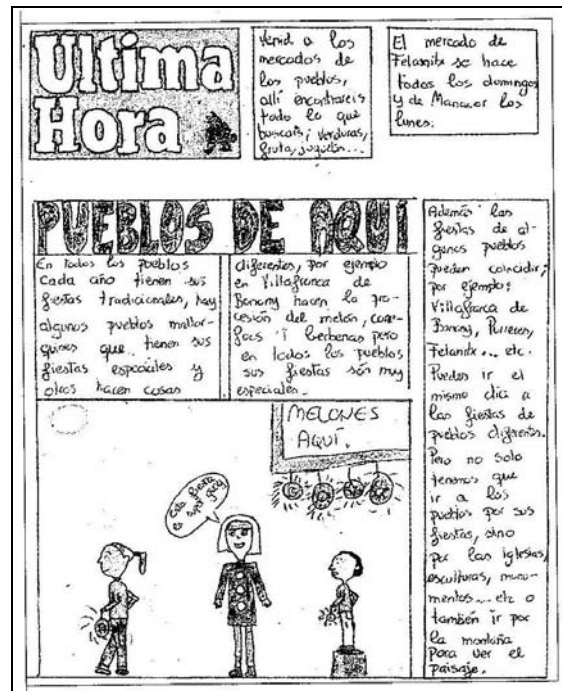 Ultima
Hora
Venid a los
mercados de
los pueblos,
allí encontrareis
todo lo que
buscais; verduras,
fruta, juguetes...
El mercado de
Felanitx se hace
todos los domingos
y de Manacor los
lunes.
PUEBLOS DE AQUÍ
En todos los pueblos
cada año tienen sus
fiestas tradicionales, hay
algunos pueblos mallor-
quines que tienen sus
fiestas especiales y
otros hacen cosas
diferentes, por ejemplo
en Villafranca de
Bonany hacen la pro-
cesión del melón, corre-
focs i berbenas pero
en todos los pueblos
sus fiestas són muy
especiales.
Además las
fiestas de al-
gunos pueblos
pueden coincidir,
por ejemplo:
Villafranca de
Bonany, Porreres,
Felanitx... etc.
Puedes ir el
mismo dia a
las fiestas de
pueblos diferentes.
Pero no solo
tenemos que
ir a los
pueblos por sus
fiestas, sino
por las iglesias,
esculturas, monu-
mentos... etc o
también ir por
la montaña
para ver el
paisaje.
MELONES
AQUÍ.
Esta fiesta
es super guay